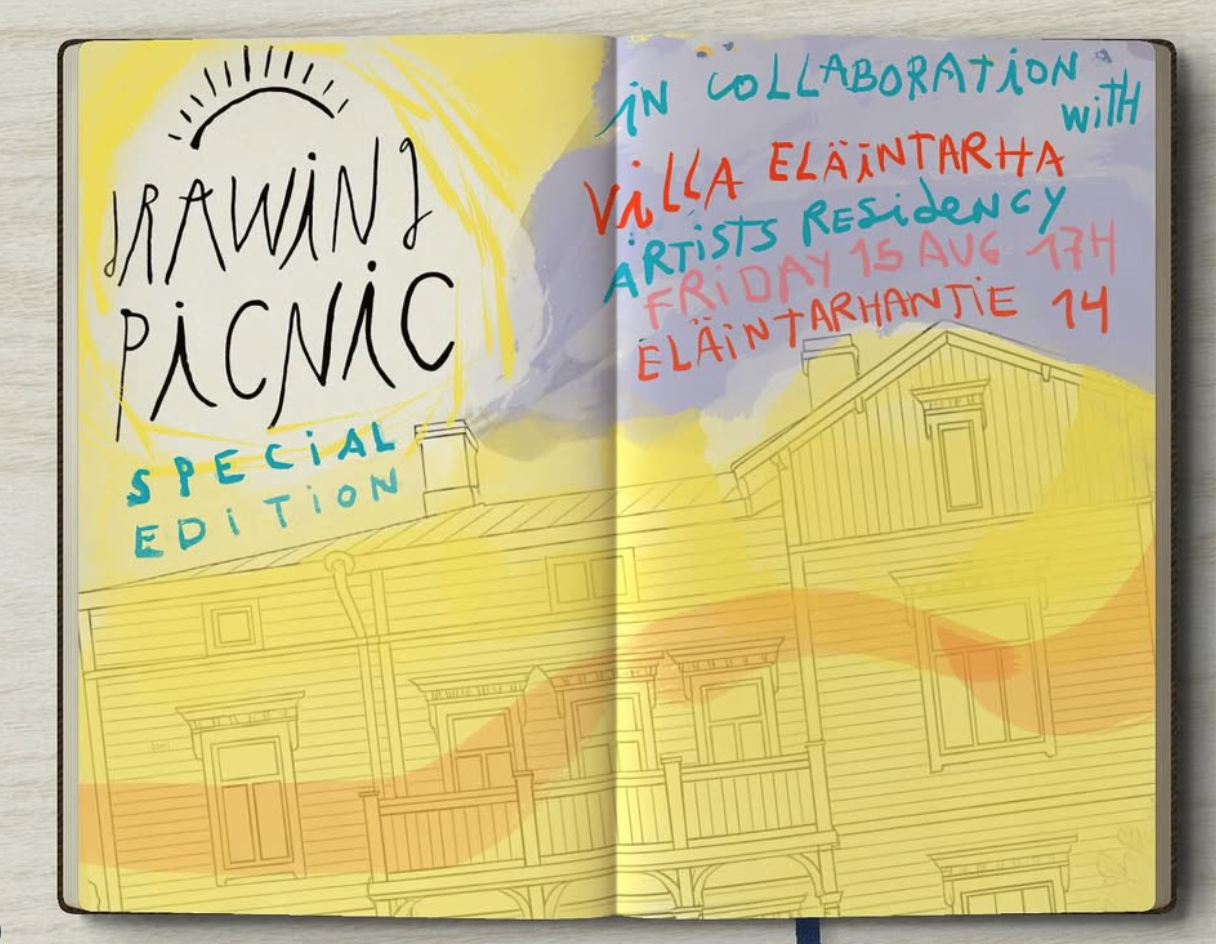 DRAWING
PiCNiC
SPECiAL
EDiTiON
iN COLLABORATiON
wiTH
ViLLA ELÄiNTARHA
ARTiSTS RESiDENCY
FRiDAY 15 AUG 17H
ELÄiNTARHANTiE 14